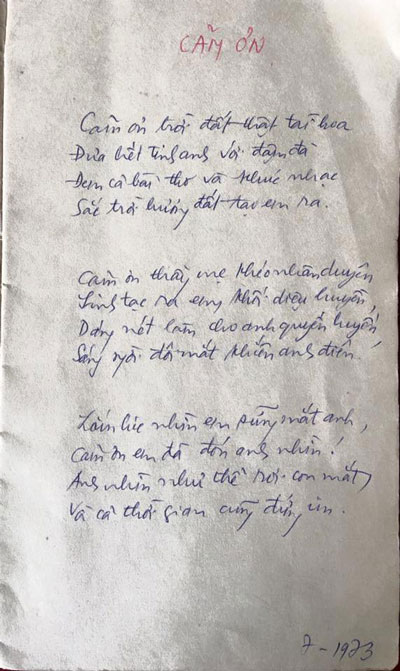 CẢM ƠN
Cảm ơn trời đất thật tài hoa
Đưa hết tinh anh với đậm đà
Đem cả bài thơ và khúc nhạc
Sắc trời hương đất tạo em ra.
Cảm ơn thầy mẹ khéo nhân duyên
Sinh tạc ra em khối diệu huyền,
Dáng nét làm cho anh quyến luyến,
Sáng ngời đôi mắt khiến anh điên.
Lắm lúc nhìn em sững mắt anh,
Cảm ơn em đã đón anh nhìn!
Anh nhìn như thể rơi con mắt,
Và cả thời gian cũng đứng im.
7-1973